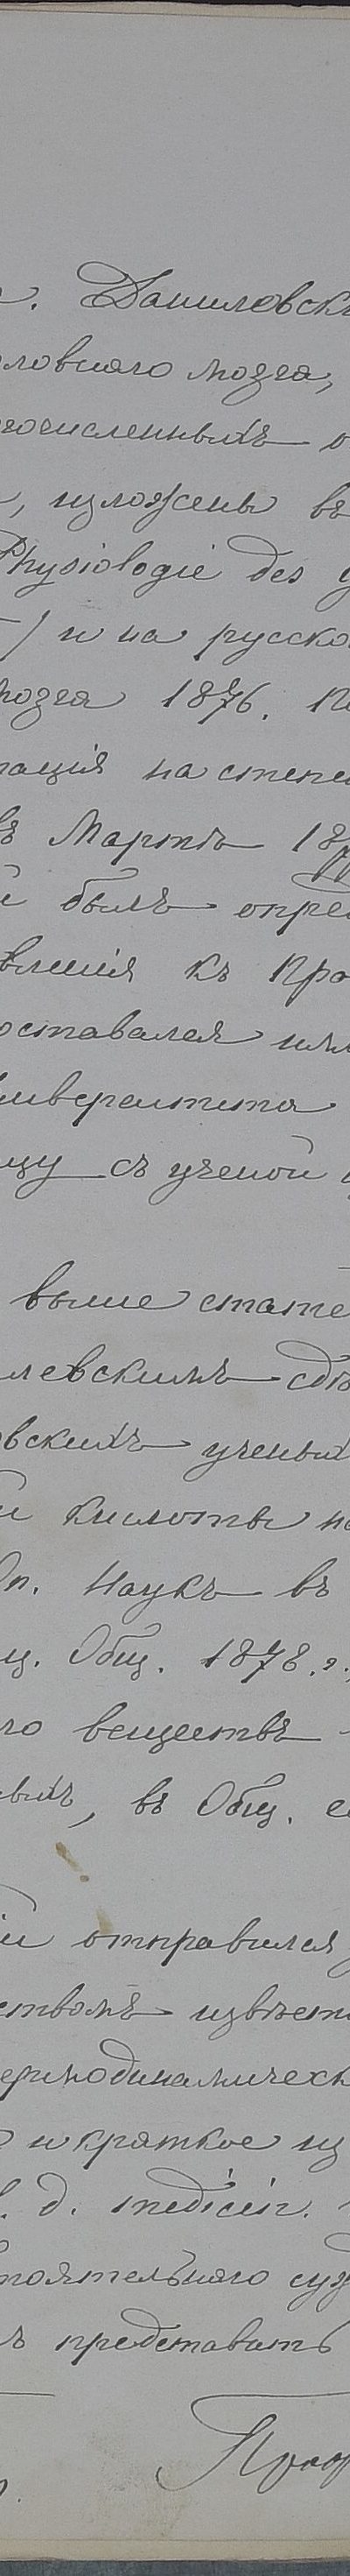 . Даниловск
ловнаго мозга,
гочисленныхъ о
, изложены въ
Physiologie des g
) и на русско
мозга 1876.
тація на степе
въ Мартѣ 18
й былъ опре
вленія къ Про
оставался
ниверситета
ицу съ ученой
выше стате
левскимъ сдѣ
вскихъ ученых
й кислоты на
Оп. Наукъ въ
ц. Общ. 1878.г.
го веществъ
выхъ, въ Общ. ес
ій отправился
ствомъ извѣстн
ермодинамическ
и краткое из
f. d. medicin.
тоятельнаго суж
ъ представить
Проф